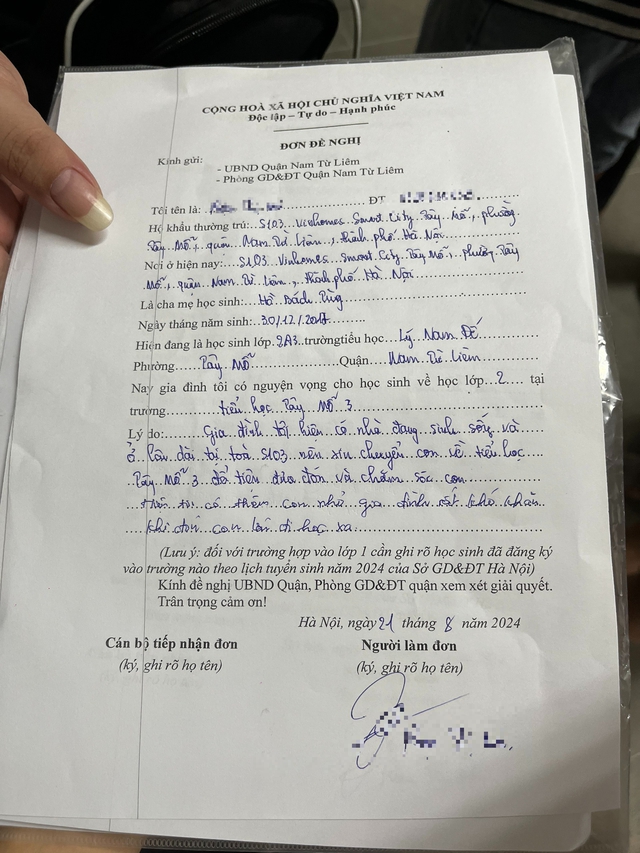 CỘNG HOÀ XÃ HỘI CHỦ NGHĨA VIỆT NAM
Độc lập – Tự do – Hạnh phúc
ĐƠN ĐỀ NGHỊ
Kính gửi:
- UBND Quận Nam Từ Liêm
- Phòng GD&ĐT Quận Nam Từ Liêm
Tôi tên là: ĐT
Hộ khẩu thường trú: S103 Vinhomes Smart City, Tây Mỗ, phường
Tây Mỗ, quận Nam Từ Liêm, thành phố Hà Nội
Nơi ở hiện nay: S103 Vinhomes Smart City, Tây Mỗ, phường Tây
Mỗ, quận Nam Từ Liêm, thành phố Hà Nội
Là cha mẹ học sinh: Hồ Bách Tùng
Ngày tháng năm sinh: 30/12/2017
Hiện đang là học sinh lớp 2A3 trường tiểu học Lý Nam Đế
Phường Tây Mỗ Quận Nam Từ Liêm
Nay gia đình tôi có nguyện vọng cho học sinh về học lớp 2 tại
trường tiểu học Tây Mỗ 3
Lý do: Gia đình tôi hiện có nhà đang sinh sống và
ở lâu dài tại toà S103 nên xin chuyển con về tiểu học
Tây Mỗ 3 để tiện đưa đón và chăm sóc con
có thêm con nhỏ gia đình rất khó khăn
khi đón con lớn đi học xa
(Lưu ý: đối với trường hợp vào lớp 1 cần ghi rõ học sinh đã đăng ký
vào trường nào theo lịch tuyển sinh năm 2024 của Sở GD&ĐT Hà Nội)
Kính đề nghị UBND Quận, Phòng GD&ĐT quận xem xét giải quyết.
Trân trọng cảm ơn!
Hà Nội, ngày 21 tháng 8 năm 2024
Cán bộ tiếp nhận đơn
(ký, ghi rõ họ tên)
Người làm đơn
(ký, ghi rõ họ tên)